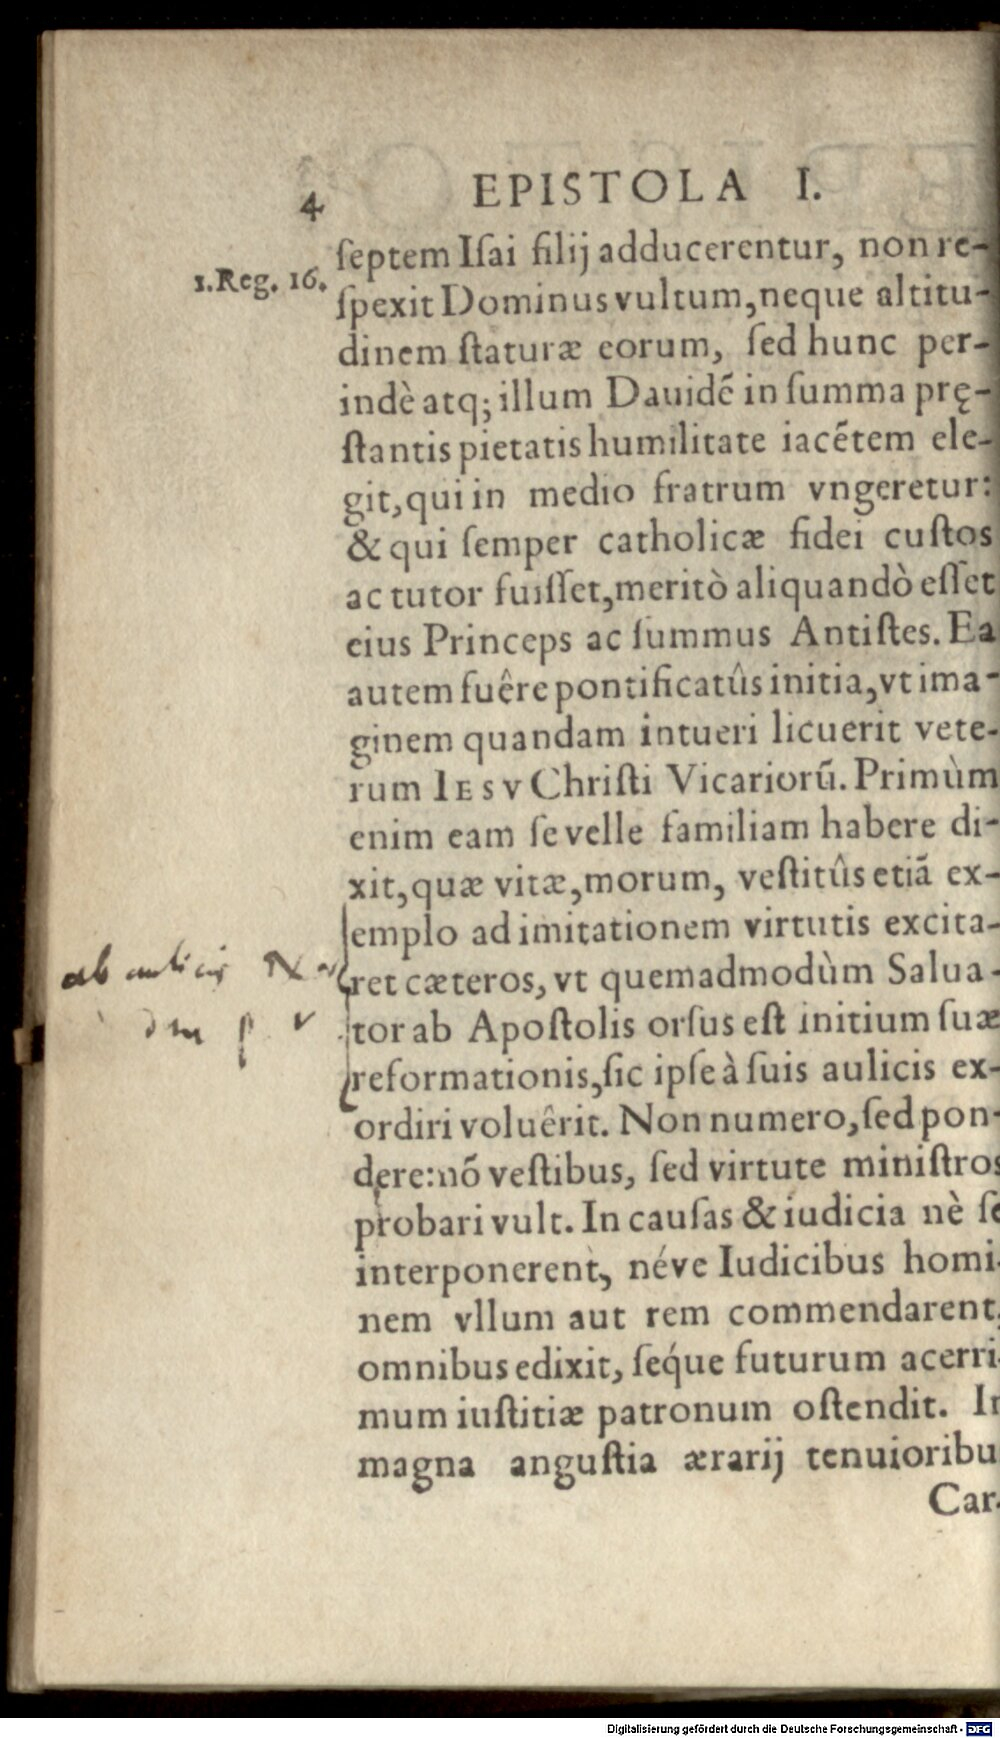 4 EPISTOLA I.
ſeptem Iſai filij adducerentur, non re-
1.Reg. 16.
ſpexit Dominus vultum, neque altitu-
dinem ſtaturæ eorum, ſed hunc per-
indè atq; illum Dauidẽ in ſumma prę-
ſtantis pietatis humilitate iacẽtem ele-
git, qui in medio fratrum vngeretur:
& qui ſemper catholicæ fidei cuſtos
ac tutor fuiſſet, meritò aliquandò eſſet
eius Princeps ac ſummus Antiſtes. Ea
autem fuêre pontificatûs initia, vt ima-
ginem quandam intueri licuerit vete-
rum IESV Chriſti Vicariorũ. Primùm
enim eam ſe velle familiam habere di-
xit, quæ vitæ, morum, veſtitûs etiã ex-
emplo ad imitationem virtutis excita-
ret cæteros, vt quemadmodùm Salua-
tor ab Apoſtolis orſus eſt initium ſuæ
reformationis, ſic ipſe à ſuis aulicis ex-
ordiri voluêrit. Non numero, ſed pon-
dere: nõ veſtibus, ſed virtute miniſtros
probari vult. In cauſas & iudicia nè ſe
interponerent, néve Iudicibus homi-
nem vllum aut rem commendarent,
omnibus edixit, ſeq́ue futurum acerri-
mum iuſtitiæ patronum oſtendit. In
magna anguſtia ærarij tenuioribu
Car-
ab aulicis
Digitalisierung gefördert durch die Deutsche Forschungsgemeinschaft - DFG